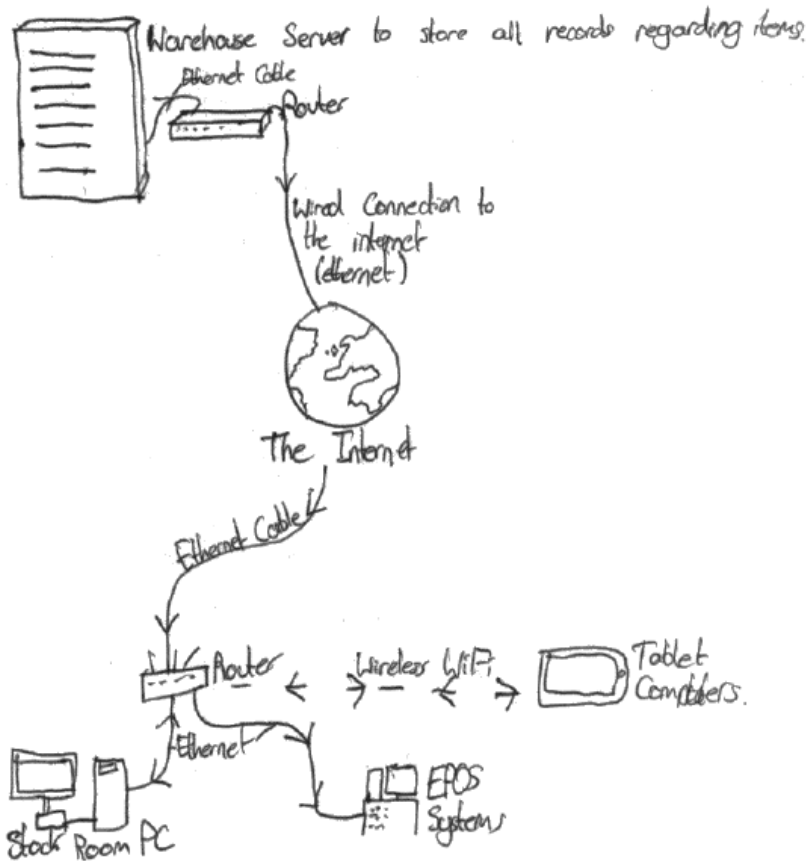 Warehouse Server to store all records regarding items.
Ethernet Cable
Router
Wired Connection to
the internet
(ethernet)
The Internet
Ethernet Cable
Router
Wireless WiFi
Tablet
Computers.
Ethernet
EPOS
Systems
Stock Room PC